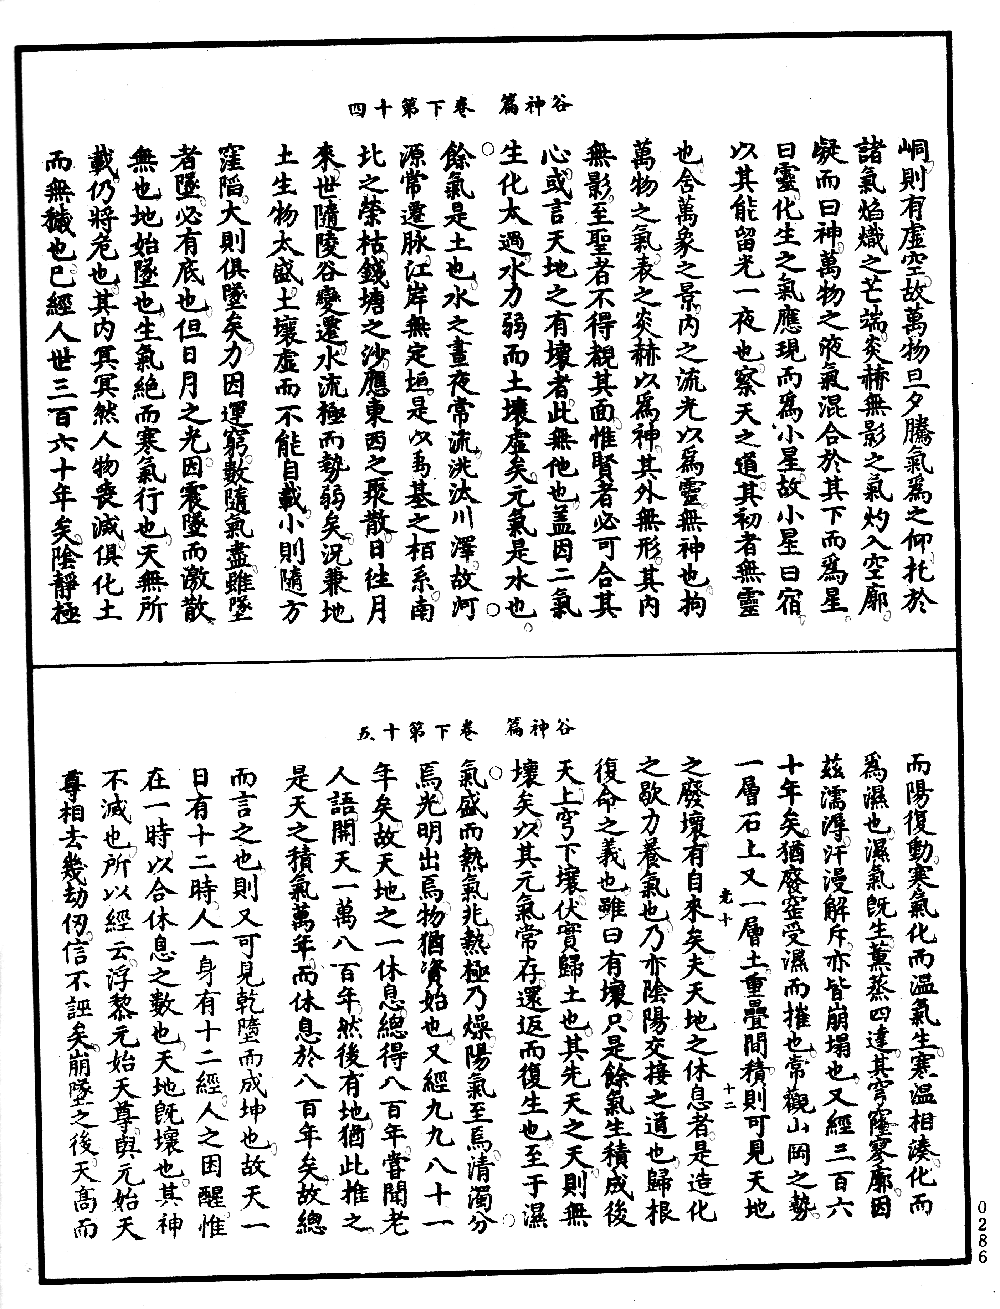 谷神篇　卷下第十四
峒則有虛空故萬物旦夕騰氣爲之仰托於
諸氣焰熾之芒端炎赫無影之氣灼入空廓
凝而曰神萬物之液氣混合於其下而爲星
曰靈化生之氣應現而爲小星故小星曰宿
以其能留光一夜也察天之道其初者無靈
也舍萬象之景內之流光以爲靈無神也拘
萬物之氣表之炎赫以爲神其外無形其內
無影至聖者不得覩其面惟賢者必可合其
心或言天地之有壞者此無他也蓋因二氣
生化太過水力弱而土壞虛矣元氣是水也
餘氣是土也水之晝夜常流洗汰川澤故河
源常遷脉江岸無定垣是以禹基之栢系南
北之榮枯錢塘之沙應東西之聚散日往月
來世隨陵谷變遷水流極而勢弱矣況兼地
土生物太盛土壤虛而不能自載小則隨方
窪陷大則俱墜矣力因運窮數隨氣盡雖墜
者墜必有底也但日月之光因震墜而激散
無也地始墜也生氣絕而寒氣行也天無所
載仍將危也其內冥冥然人物喪滅俱化土
而無穢也已經人世三百六十年矣陰靜極
谷神篇　卷下第十五
而陽復動寒氣化而溫氣生寒溫相湊化而
爲濕也濕氣旣生薰蒸四達其穹窿寥廓因
玆濡溽汗漫解斥亦皆崩塌也又經三百六
十年矣猶廢窑受濕而摧也常觀山岡之勢
一層石上又一層土重疊間積則可見天地
羌十　十二
之廢壞有自來矣夫天地之休息者是造化
之歇力養氣也乃亦陰陽交接之道也歸根
復命之義也雖曰有壞只是餘氣生積成後
天上穹下壤伏實歸土也其先天之天則無
壞矣以其元氣常存還返而復生也至于濕
氣盛而熱氣兆熱極乃燥陽氣至焉清濁分
焉光明出焉物猶資始也又經九九八十一
年矣故天地之一休息總得八百年嘗聞老
人語開天一萬八百年然後有地猶此推之
是天之積氣萬年而休息於八百年矣故總
而言之也則又可見乾墮而成坤也故天一
日有十二時人一身有十二經人之困醒惟
在一時以合休息之數也天地旣壞也其神
不滅也所以經云浮黎元始天尊與元始天
尊相去幾劫仞信不誣矣崩墜之後天高而
0286